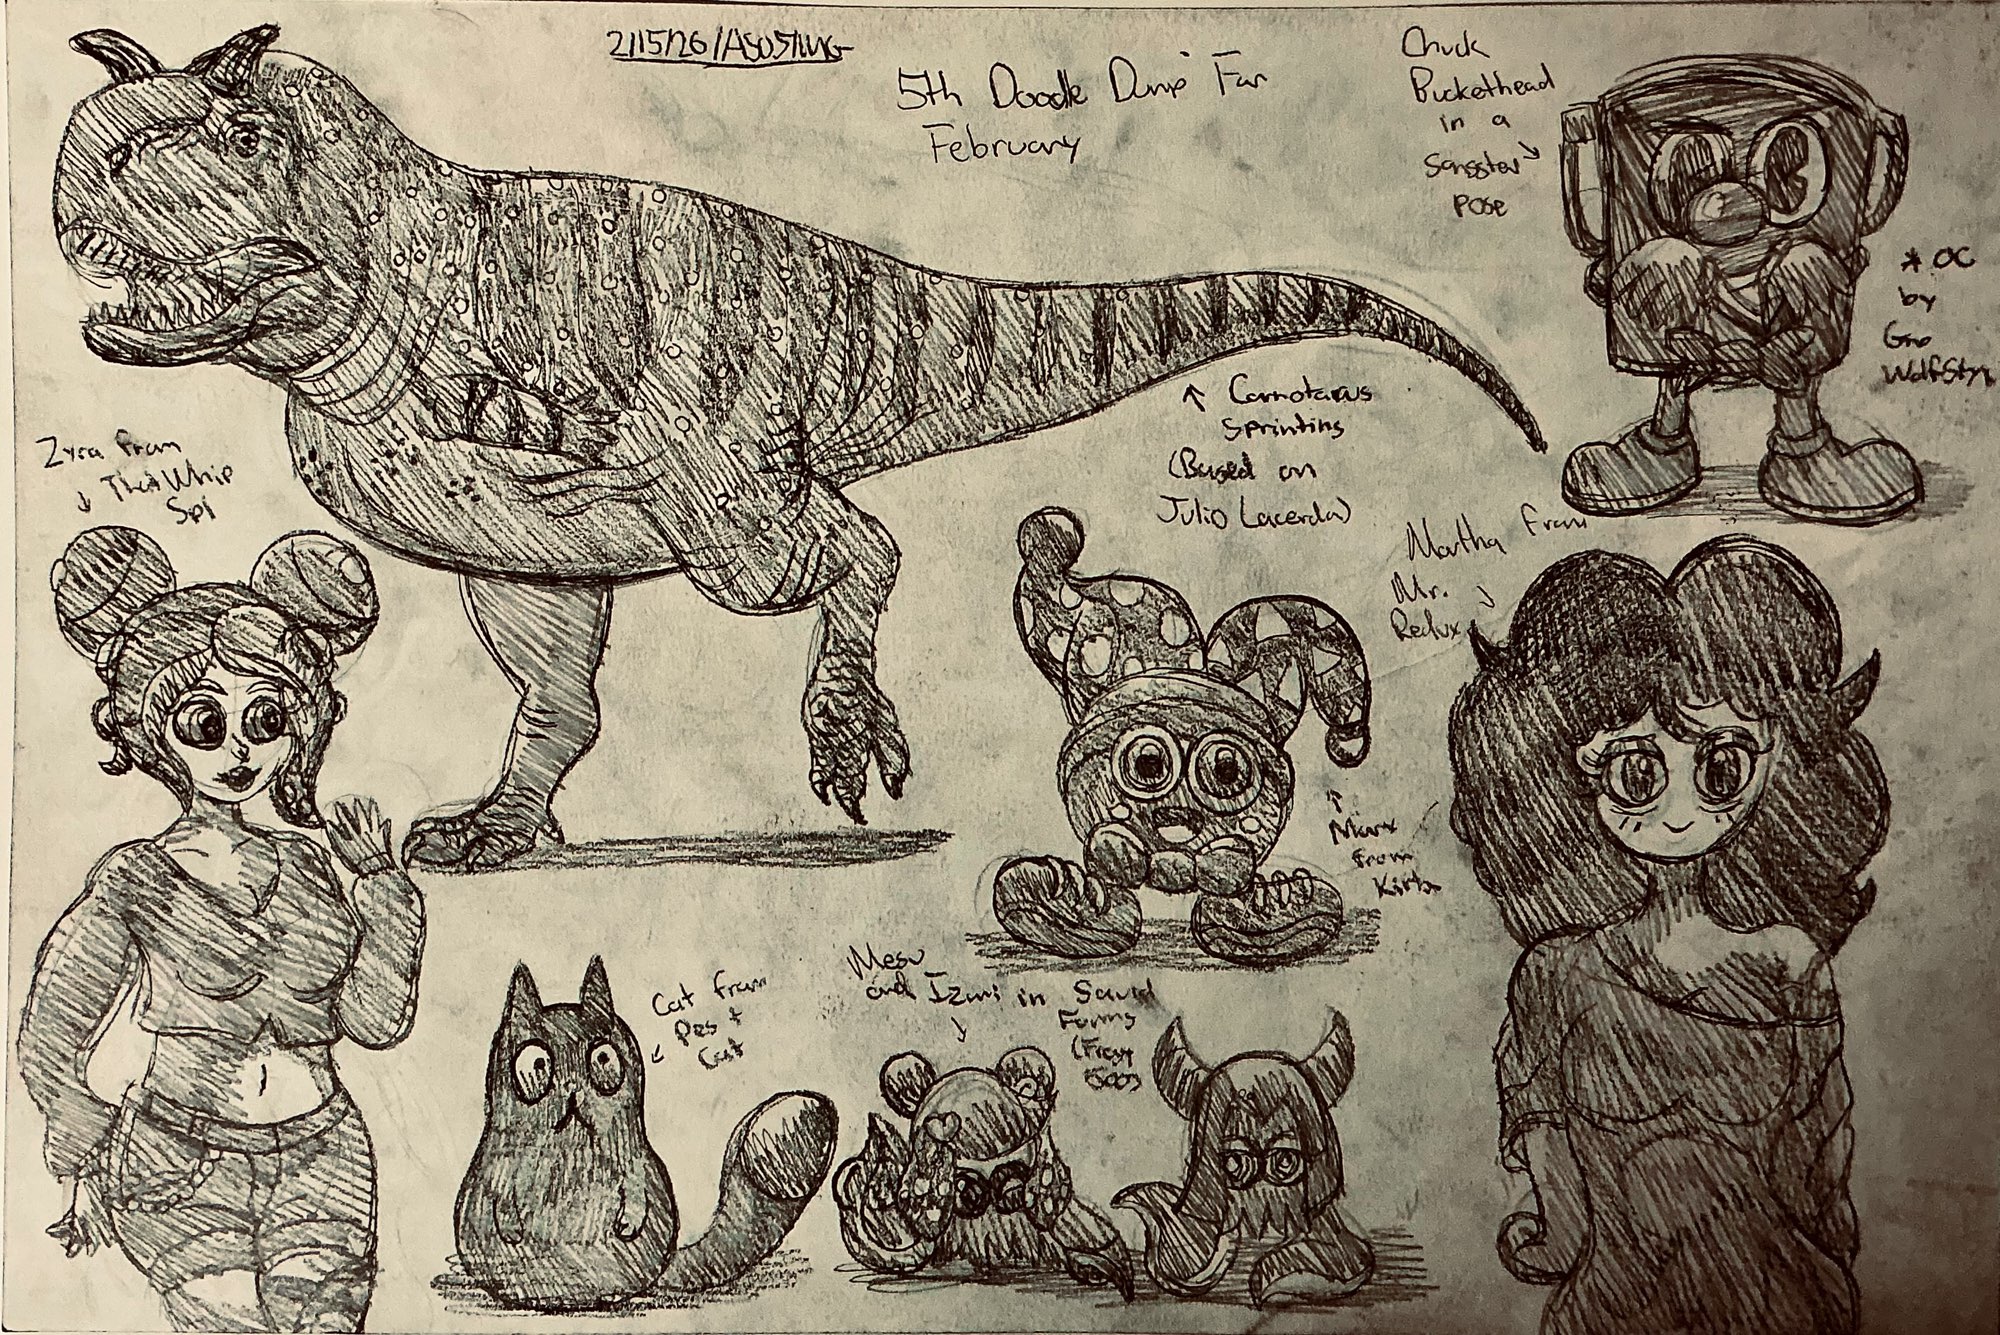 2/15/26/
5th Doodle Dump For
February
Chuck
Buckethead
in a
Gangster
Pose
* OC
by
Gno
Wolfstyx
Carnotarus
Sprinting
(Based on
Julio Lacerda)
Zyra from
ThatWhip
Spi
Martha from
Mr.
Redux
Marx
from
Kirby
Mesu
and Izumi in Squid
Forms
Cat from
+
Cat